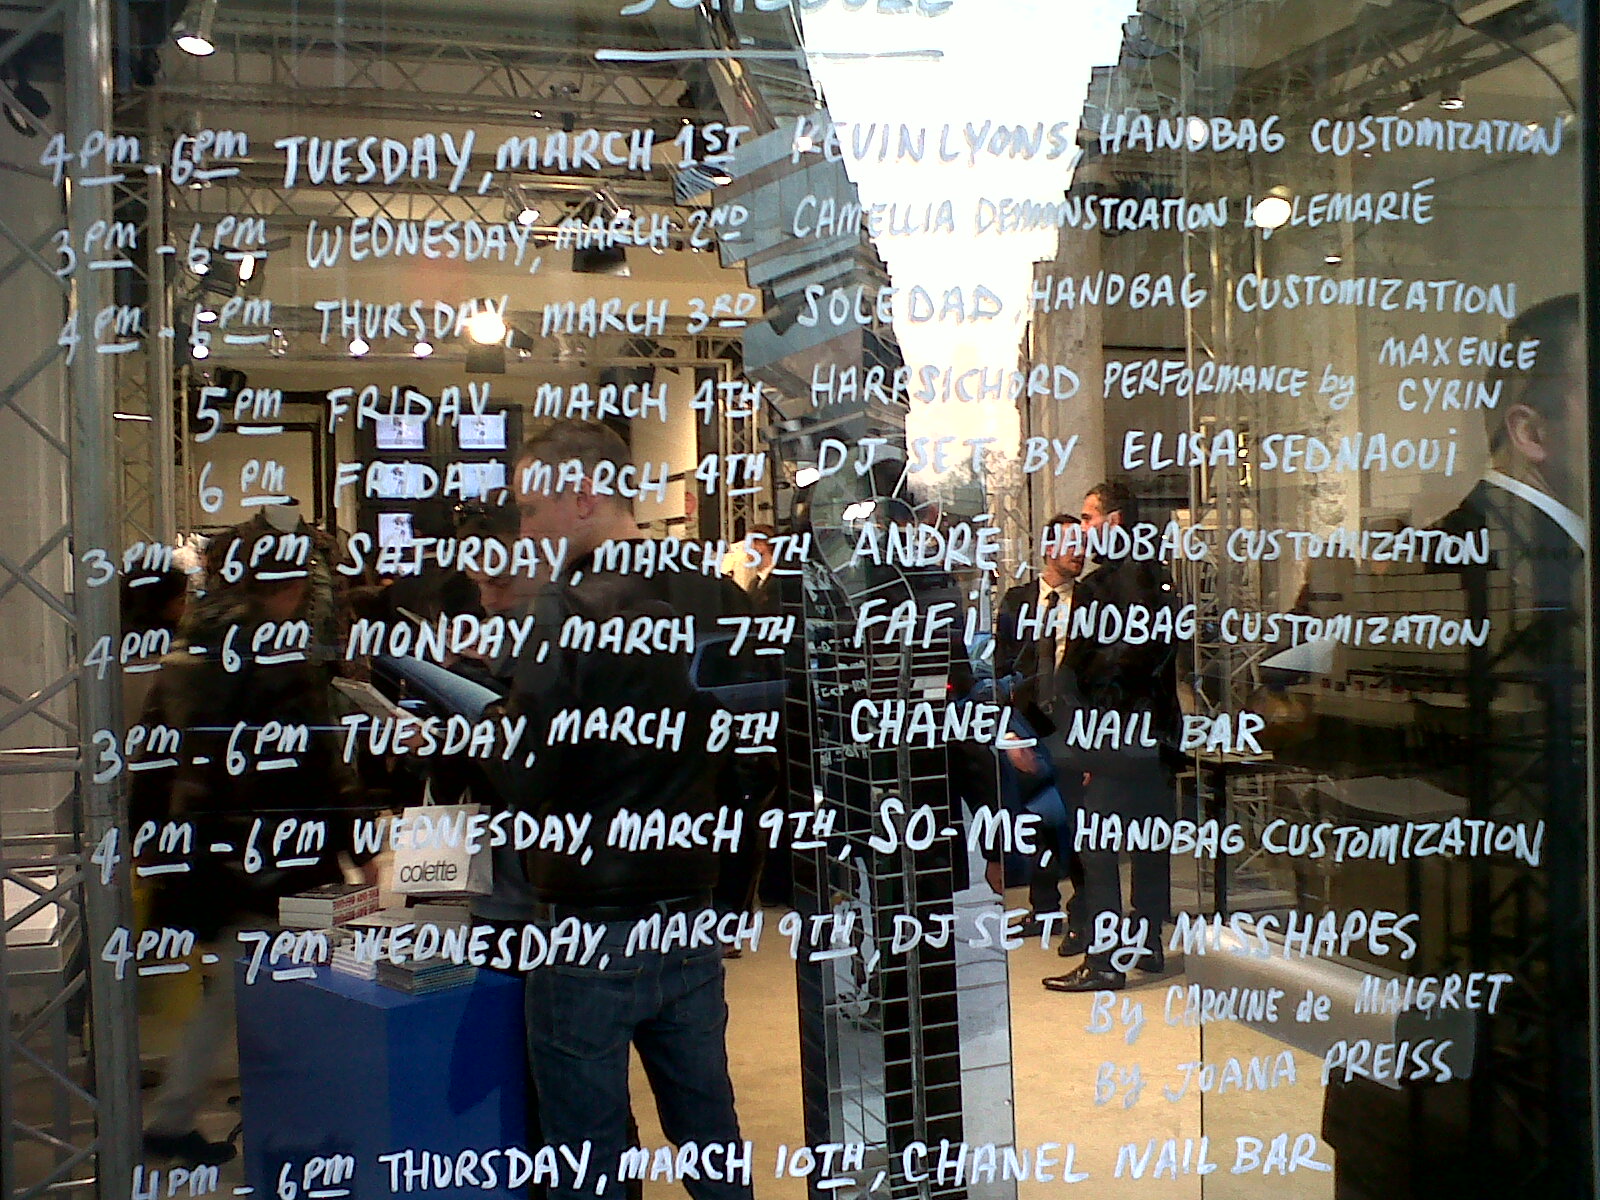 SCHEDULE
4PM - 6PM TUESDAY, MARCH 1ST KEVIN LYONS, HANDBAG CUSTOMIZATION
3PM - 6PM WEDNESDAY, MARCH 2ND CAMELLIA DEMONSTRATION by LEMARIÉ
4PM - 6PM THURSDAY, MARCH 3RD SOLEDAD, HANDBAG CUSTOMIZATION
5PM FRIDAY, MARCH 4TH HARPSICHORD PERFORMANCE by MAXENCE
CYRIN
6PM FRIDAY, MARCH 4TH DJ SET BY ELISA SEDNAOUi
3PM - 6PM SATURDAY, MARCH 5TH ANDRÉ, HANDBAG CUSTOMIZATION
4PM - 6PM MONDAY, MARCH 7TH FAFi, HANDBAG CUSTOMIZATION
3PM - 6PM TUESDAY, MARCH 8TH CHANEL NAIL BAR
4PM - 6PM WEDNESDAY, MARCH 9TH, SO-ME, HANDBAG CUSTOMIZATION
colette
4PM - 7PM WEDNESDAY, MARCH 9TH, DJ SET By MISSHAPES
By CAROLINE de MAIGRET
By JOANA PREISS
4PM - 6PM THURSDAY, MARCH 10TH, CHANEL NAIL BAR